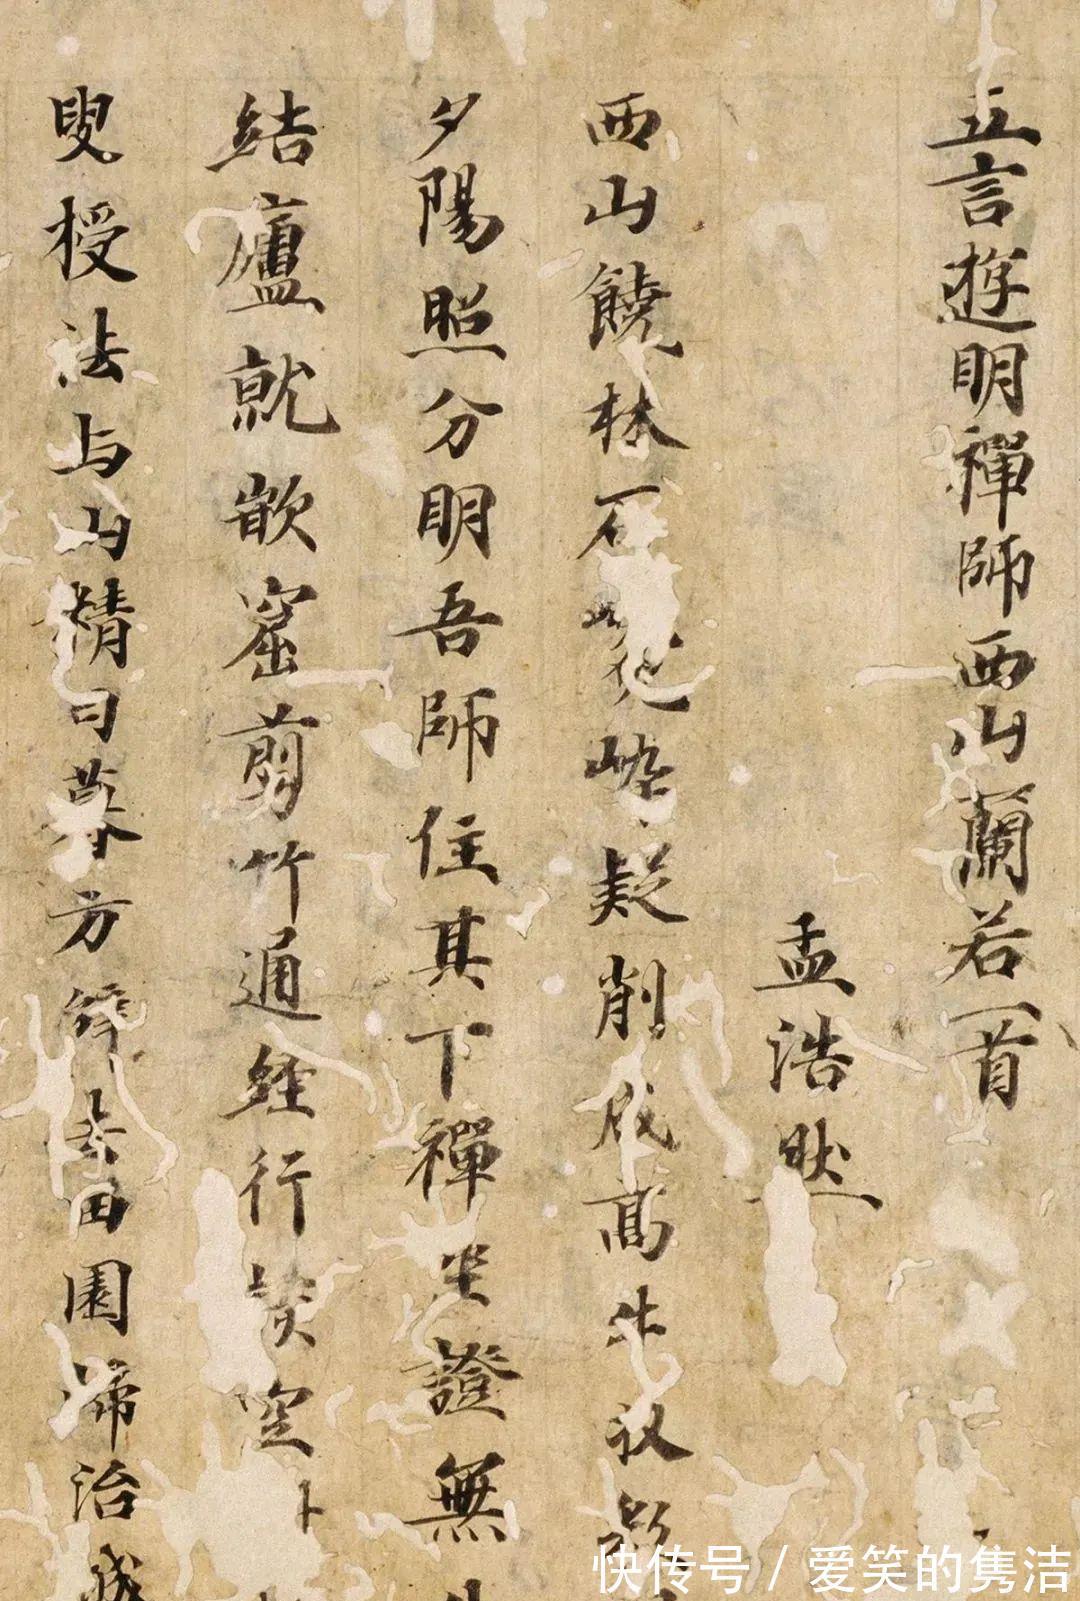 五言遊明禪師西山蘭若一首
孟浩然
西山饒林石疑削成高
夕陽照分明吾師住其下禪坐證無
結廬就嵌窟剪竹通經行談空
叟授法与山精日暮方辞去田園歸治城
快传号 / 爱笑的隽洁